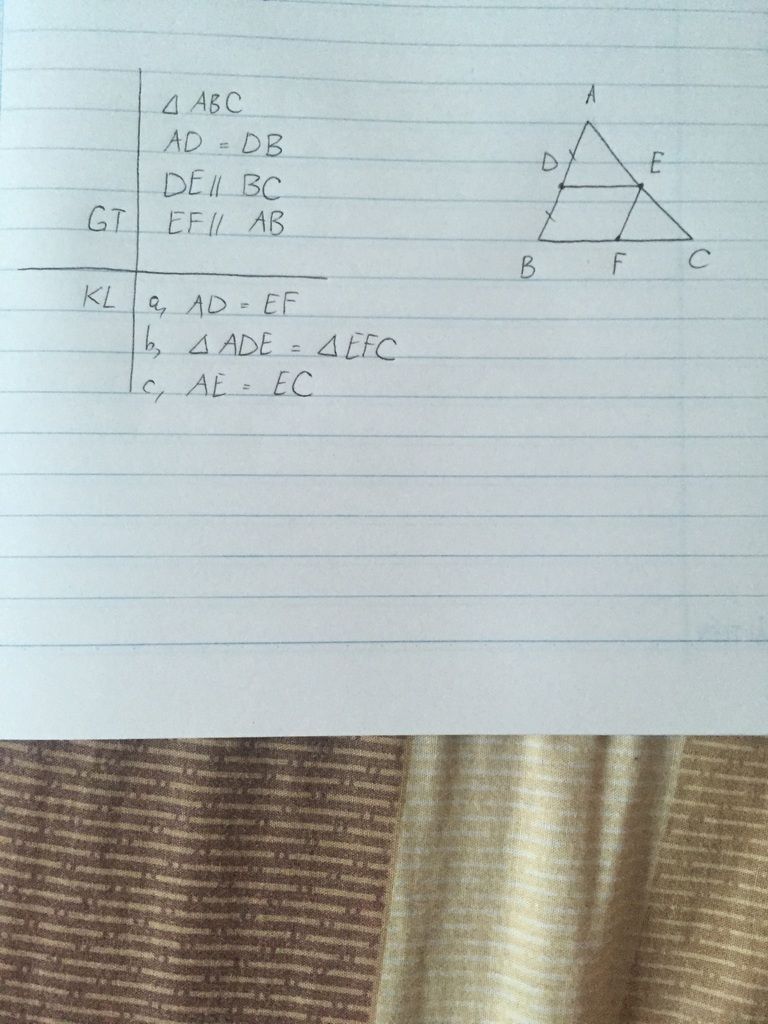 △ ABC
AD = DB
DE // BC
GT EF // AB
KL a, AD = EF
b, △ ADE = △ EFC
c, AE = EC
A
D E
B F C